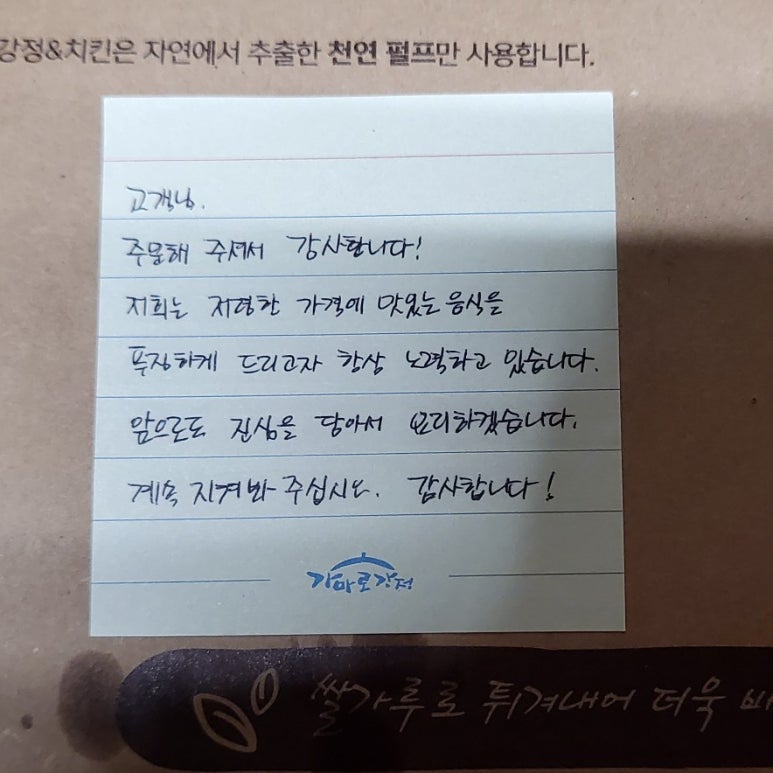 강정&치킨은 자연에서 추출한 천연 펄프만 사용합니다.
고객님.
주문해 주셔서 감사합니다!
저희는 저렴한 가격에 맛있는 음식을
푸짐하게 드리고자 항상 노력하고 있습니다.
앞으로도 진심을 담아서 요리하겠습니다.
계속 지켜봐 주십시오. 감사합니다!
가마로강정
쌀가루로 튀겨내어 더욱 바